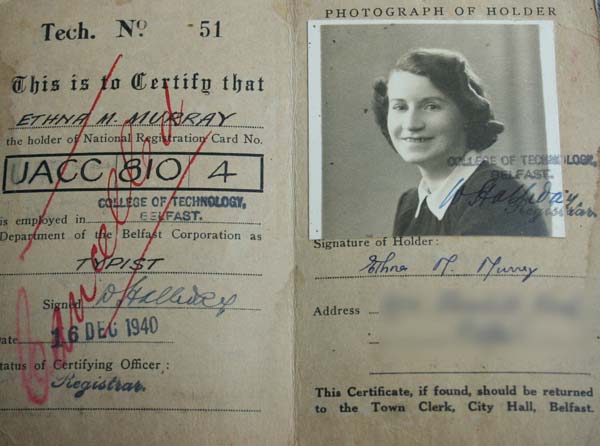 Tech. No 51
This is to Certify that
ETHNA M. MURRAY
the holder of National Registration Card No.
UACC 810 4
COLLEGE OF TECHNOLOGY,
is employed in BELFAST.
Department of the Belfast Corporation as
TYPIST
Signed W Halliday
Date 16 DEC 1940
Status of Certifying Officer:
Registrar.
Cancelled
PHOTOGRAPH OF HOLDER
COLLEGE OF TECHNOLOGY,
BELFAST.
W Halliday
Registrar.
Signature of Holder:
Ethna M. Murray
Address
This Certificate, if found, should be returned
to the Town Clerk, City Hall, Belfast.